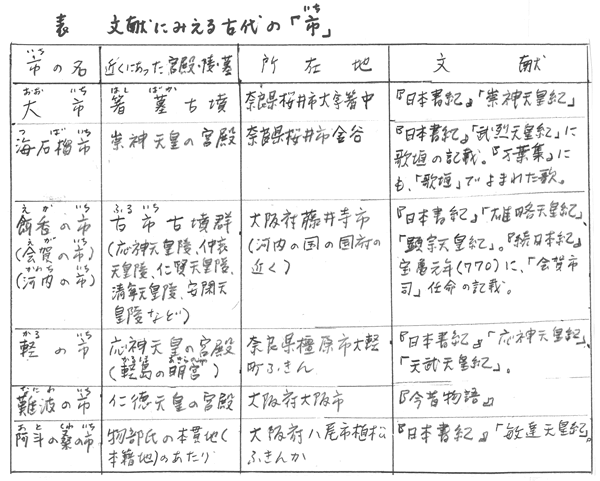 表 文献にみえる古代の「市」
市の名 近くにあった宮殿・陵・墓 所在地 文献
大市 箸墓古墳 奈良県桜井市大字箸中 『日本書紀』「崇神天皇紀」
海石榴市 崇神天皇の宮殿 奈良県桜井市金谷 『日本書紀』「武烈天皇紀」に
歌垣の記載。『万葉集』に
も、「歌垣」でよまれた歌。
餌香の市
(会賀の市)
(河内の市)
古市古墳群
(応神天皇陵、仲哀
天皇陵、仁賢天皇陵、
清寧天皇陵、安閑天
皇陵など)
大阪府藤井寺市
(河内の国の国府の
近く)
『日本書紀』「雄略天皇紀」、
「顕宗天皇紀」。『続日本紀』
宝亀元年(770)に、「会賀市
司」任命の記載。
軽の市
応神天皇の宮殿
(軽島の明宮)
奈良県橿原市大軽
町ふきん
『日本書紀』「応神天皇紀」、
「天武天皇紀」。
難波の市 仁徳天皇の宮殿 大阪府大阪市 『今昔物語』
阿斗の桑の市
物部氏の本貫地(
本籍地)のあたり
大阪府八尾市植松
ふきんか
『日本書紀』「敏達天皇紀」。